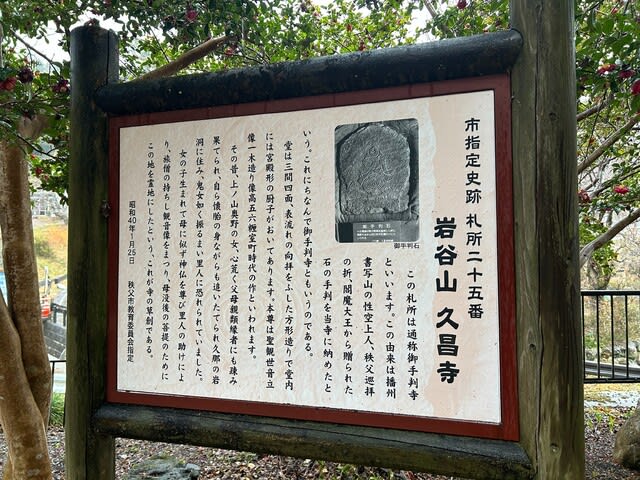 市指定史跡 札所二十五番
岩谷山 久昌寺
この札所は通称御手判寺
といいます。この由来は播州
書写山の性空上人、秩父巡拝
の折閻魔大王から贈られた
石の手判を当寺に納めたと
いう。これにちなんで御手判寺ともいうのである。
堂は三間四面、表流れの向拝をふした方形造りで堂内
には宮殿形の厨子がおいてあります。本尊は聖観世音立
像一木造り像高五六糎室町時代の作といわれます。
その昔、上ノ山奥野の女、心荒く父母親類縁者にも疎み
果てられ、自ら懐胎の身ながらも追いたてられ久那の岩
洞に住み、鬼女如く振るまい里人に恐れられていました。
女の子生まれて母に似ず神仏を尊び里人の助けによ
り、旅僧の持ちし観音像をまつり、母没後の菩提のために
この地を霊地にしたという。これが寺の草創である。
昭和40年1月25日 秩父市教育委員会指定
御手判石
御手判石